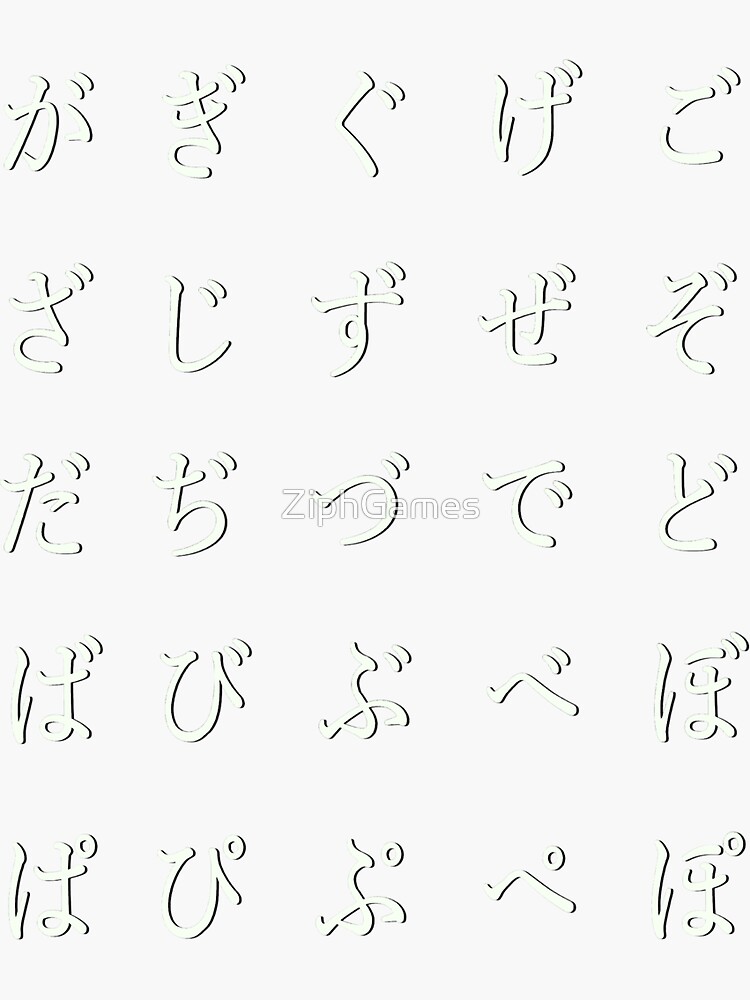 がぎぐげご
ざじずぜぞ
だぢづでど
ZiphGames
ばびぶべぼ
ぱぴぷぺぽ